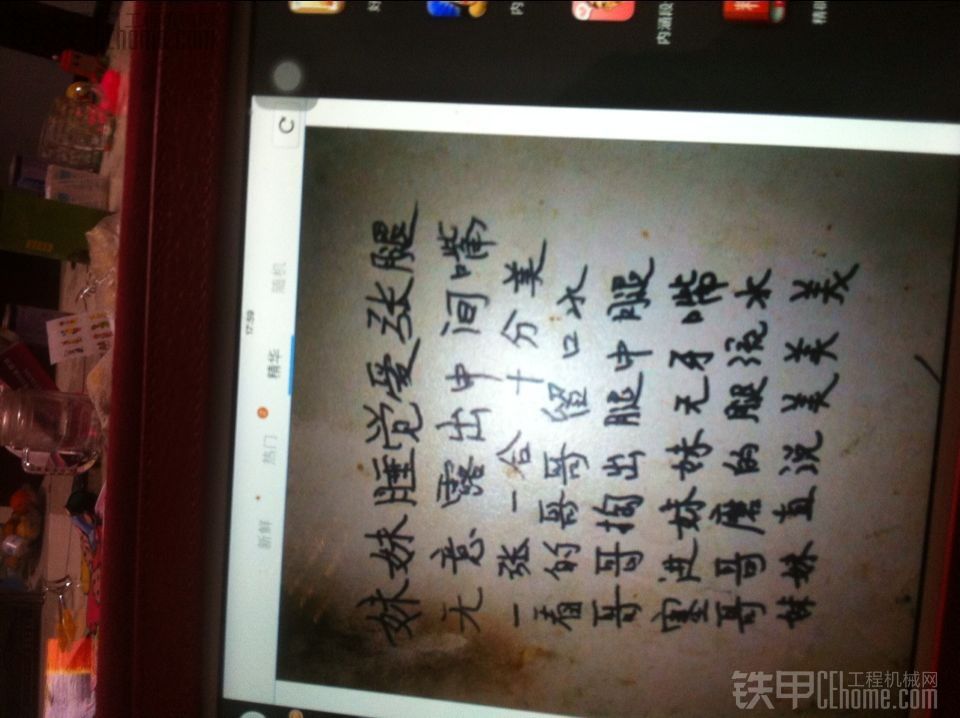 内涵段
17:59
新鲜 热门 精华 随机
妹妹睡觉爱张腿
无意露出中间嘴
一张一合十分美
看的哥哥留口水
哥哥掏出腿中腿
塞进妹妹无牙嘴
哥哥磨的腿流水
妹妹直说美美美
铁甲 工程机械网
CEhome.com